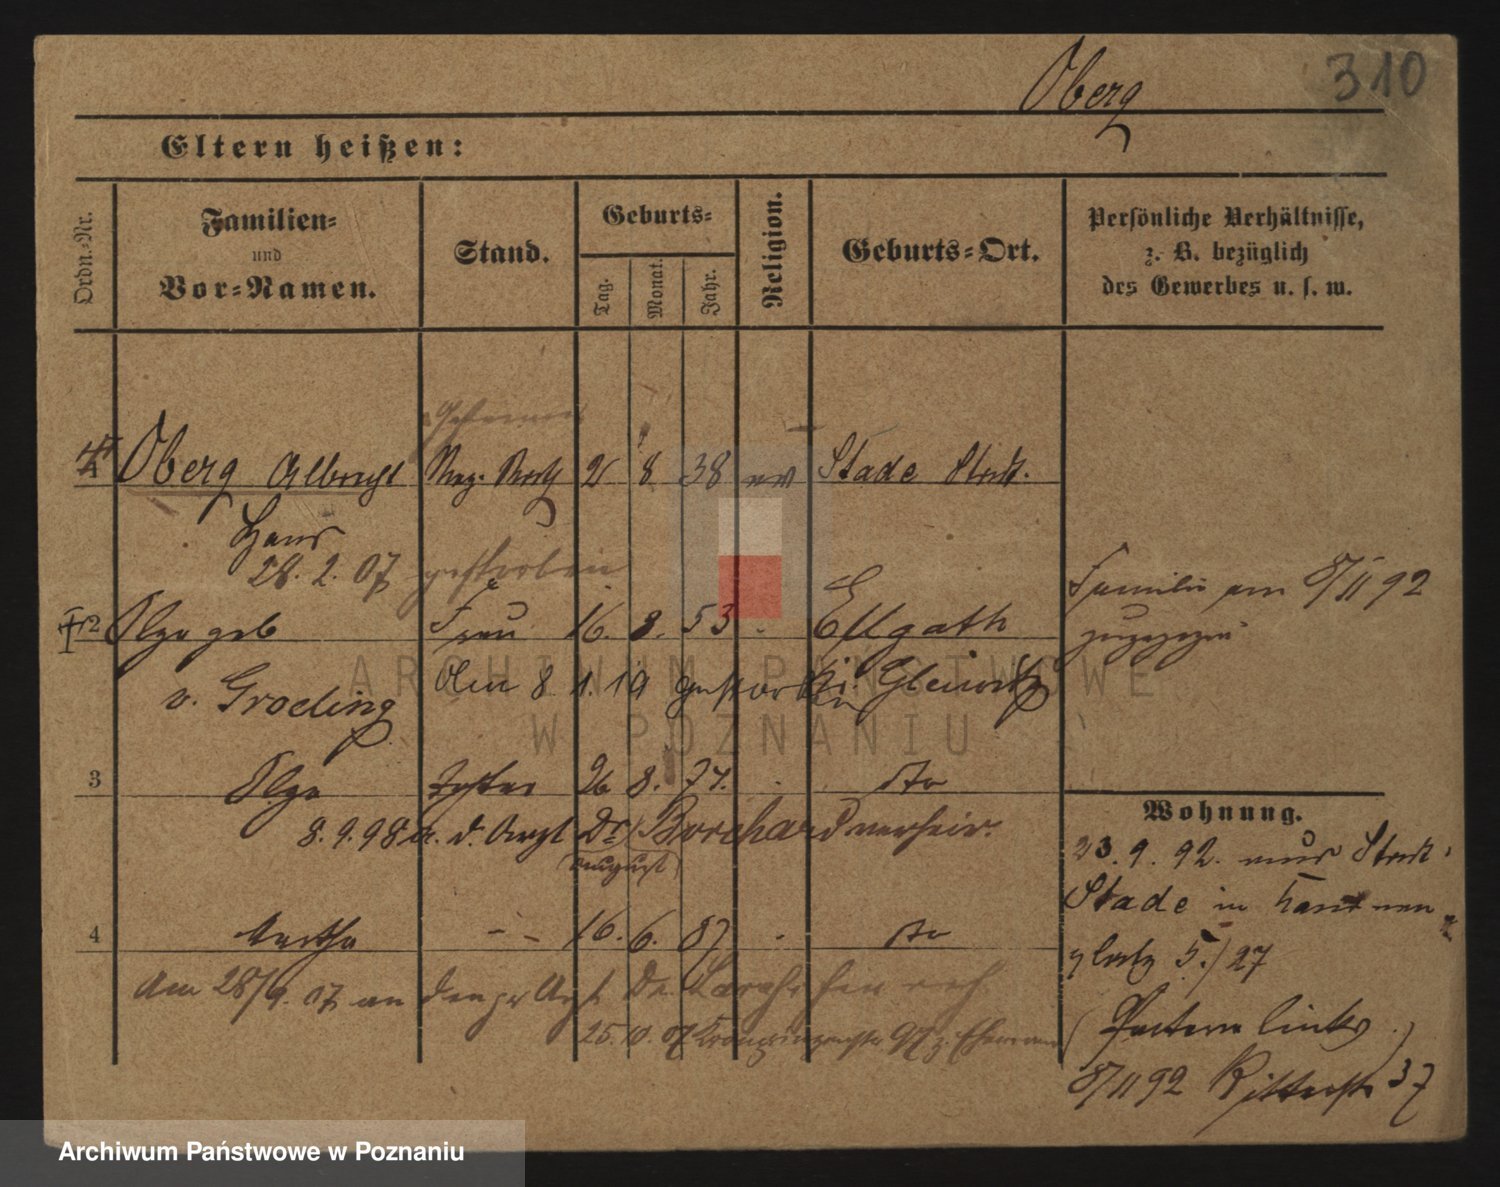 310
Oberg
Eltern heißen:
Ordn.-Nr.
Familien-
und
Vor-Namen.
Stand.
Geburts-
Tag.
Monat.
Jahr.
Religion.
Geburts-Ort.
Persönliche Verhältnisse,
z. B. bezüglich
des Gewerbes u. s. w.
Oberg Albrecht Reg. Rath 8 38 ev Stade Stadt.
Hans
28. 2. 07 gestorben
Familie am 8/11 92
zugezogen
2 Olga geb Frau 16. 8. 53
v. Groeling Am 8. 1. 19 gestorben Gleiwitz
3 Olga Tochter 26 8. 77. do
Wohnung.
8. 9. 98 a. d. Arzt Dr Borchard verheir.
(August)
23. 9. 92. aus Stadt
Stade in Hannover
4 Martha - - 16. 6. 87 do
platz 5./27
Am 28/9. 07 an den pr Arzt Dr.
25. 10. 07 Kronprinzenstr 97 z. Ehemann
(Pastern links.)
8/11 92 Ritterstr 37
ARCHIWUM PAŃSTWOWE
W POZNANIU
Archiwum Państwowe w Poznaniu